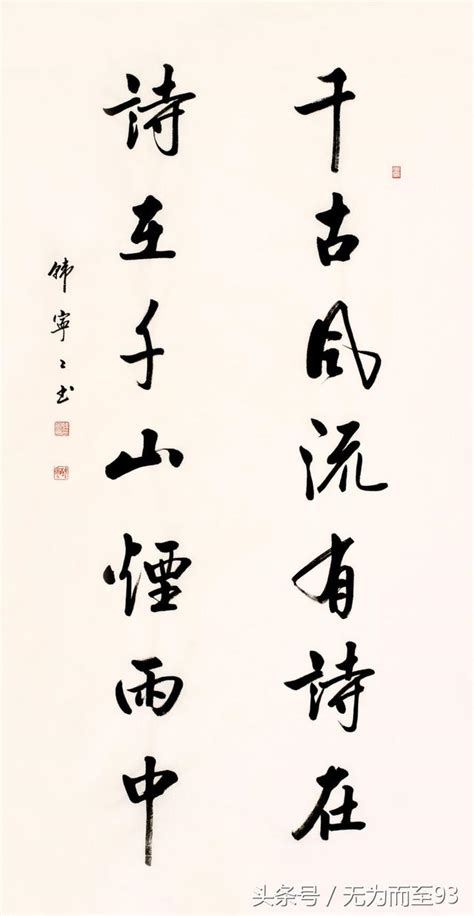 千古风流有詩在
詩在千山煙雨中
韩寧〻书
头条号 / 无为而至93